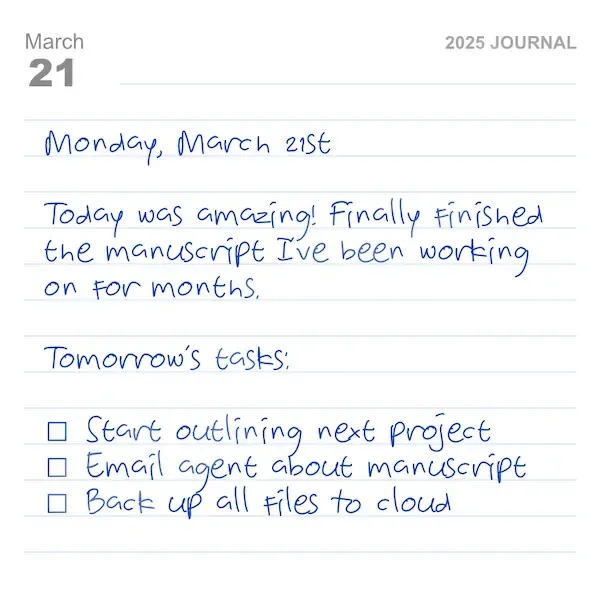 March
2025 JOURNAL
21
Monday, March 21st
Today was amazing! Finally finished
the manuscript I've been working
on for months.
Tomorrow's tasks:
☐ Start outlining next project
☐ Email agent about manuscript
☐ Back up all files to cloud